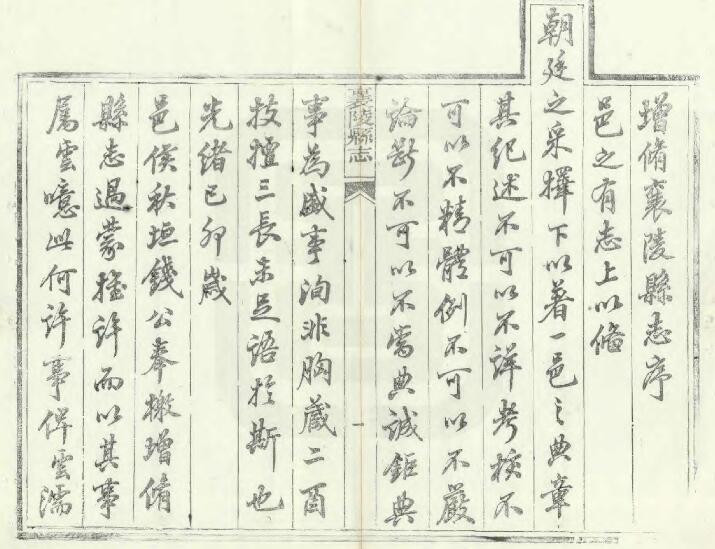 增脩襄陵縣志序
邑之有志上以脩
朝廷之采擇下以著一邑之典章
其紀述不可以不詳考核不
可以不精體例不可以不嚴
論斷不可以不當典誠鉅典
事為盛事洵非胸藏二酉
技擅三長未足語於斯也
光緒己卯歲
邑侯秋垣錢公奉檄增脩
縣志過蒙推許而以其事
屬雲噫此何許事俾雲濡
襄陵縣志
一